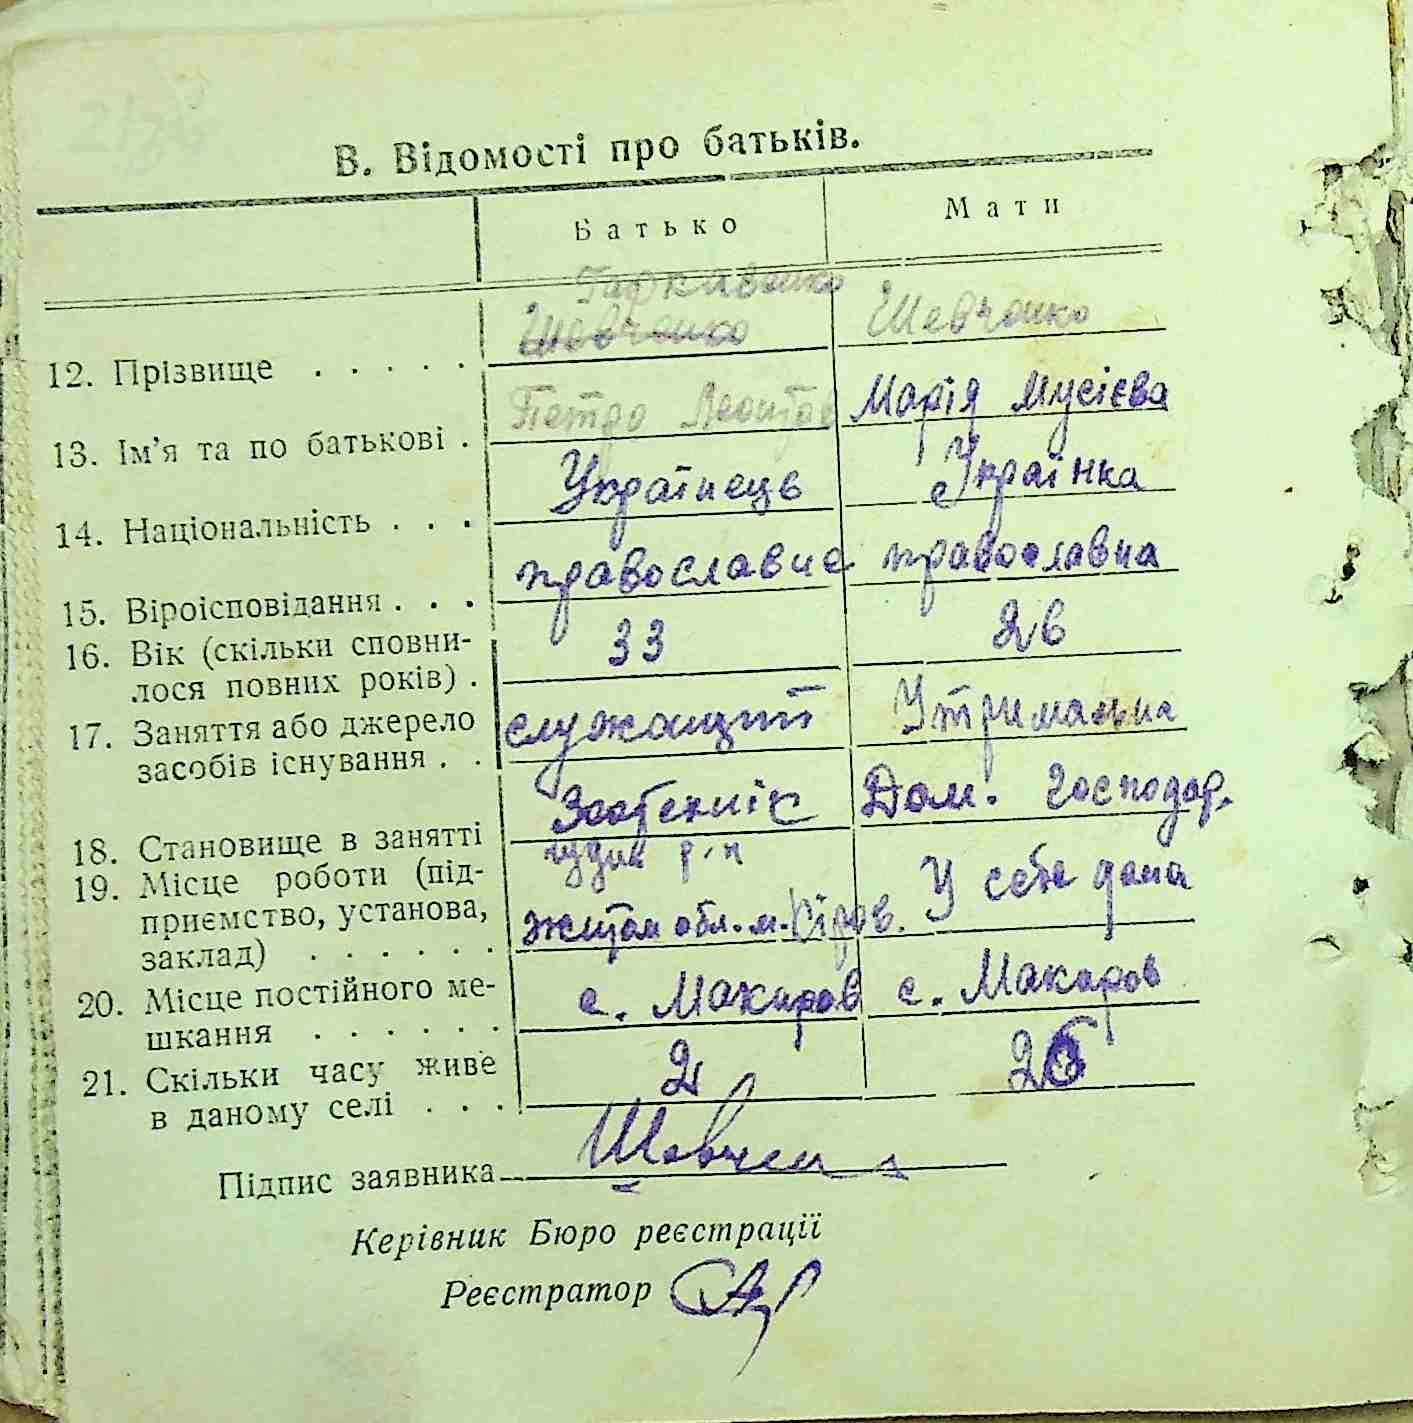 В. Відомості про батьків.
Батько Мати
Гаркавенко
12. Прізвище . . . . . Шевченко Шевченко
13. Ім'я та по батькові . Петро Марія Мусієва
14. Національність . . . Українець Українка
15. Віроісповідання . . . православне православна
16. Вік (скільки сповни-
лося повних років) . 33 26
17. Заняття або джерело
засобів існування . . служащий Утримальна
18. Становище в занятті Зоотехнік Дом. господар.
19. Місце роботи (під-
приємство, установа,
заклад) . . . . . . Житом обл. м. У себе дома
20. Місце постійного ме-
шкання . . . . . . с. Макаров с. Макаров
21. Скільки часу живе
в даному селі . . . 2 26
Підпис заявника
Керівник Бюро реєстрації
Реєстратор